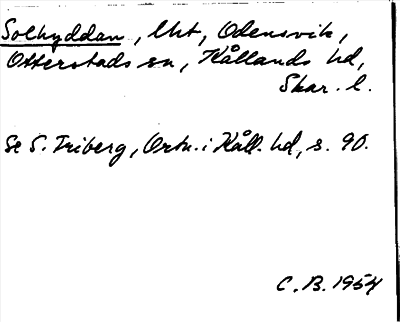 Solhyddan, lht, Odensvik,
Otterstads sn, Kållands hd,
Skar. l.
Se S. Friberg, Ortn. i Kåll. hd, s. 90.
C. B. 1954